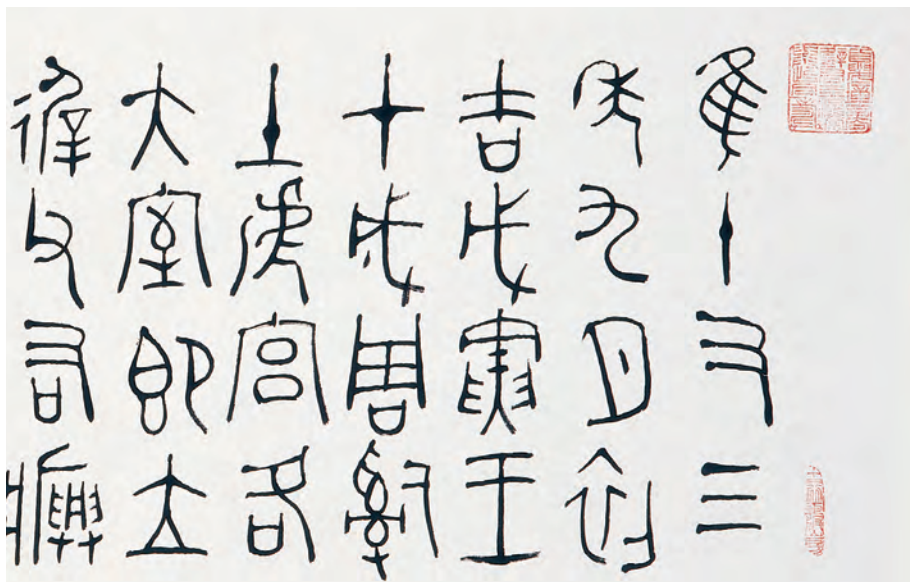 隹十又三
年九月初
吉戊寅王
才成周𤔲
土淲宮各
大室即立
徲父右𤼈